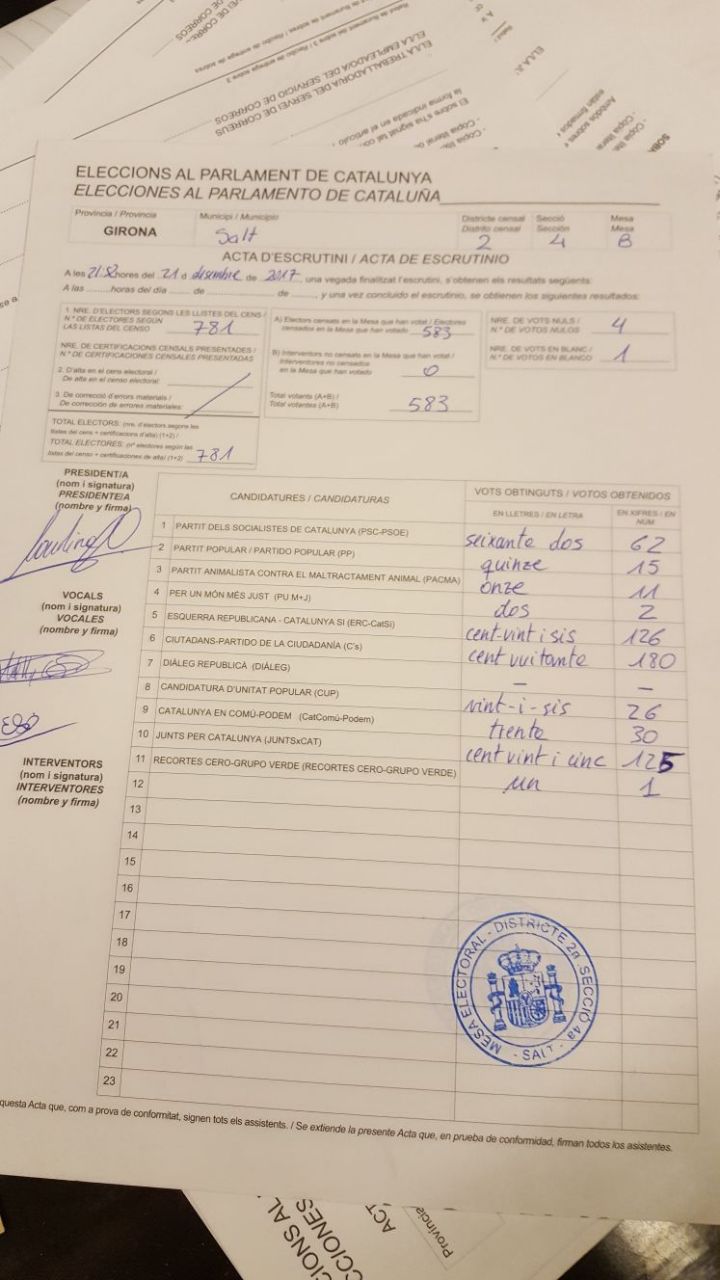 ELECCIONS AL PARLAMENT DE CATALUNYA
ELECCIONES AL PARLAMENTO DE CATALUÑA
Província / Provincia Municipi / Municipio Districte censal Secció Mesa
Distrito censal Sección Mesa
GIRONA Salt 2 4 B
ACTA D'ESCRUTINI / ACTA DE ESCRUTINIO
A les 21:52 hores del 21 d desembre de 2017, una vegada finalitzat l'escrutini, s'obtenen els resultats següents:
A las ........ horas del día ...... de ............ de ........, y una vez concluido el escrutinio, se obtienen los siguientes resultados:
1. NRE. D'ELECTORS SEGONS LES LLISTES DEL CENS /
N.º DE ELECTORES SEGÚN
LAS LISTAS DEL CENSO 781
NRE. DE CERTIFICACIONS CENSALS PRESENTADES /
N.º DE CERTIFICACIONES CENSALES PRESENTADAS
2. D'alta en el cens electoral /
De alta en el censo electoral:
3. De correcció d'errors materials /
De corrección de errores materiales:
TOTAL ELECTORS: (nre. d'electors segons les
llistes del cens + certificacions d'alta) (1+2) /
TOTAL ELECTORES: (nº electores según las
listas del censo + certificaciones de alta) (1+2) 781
A) Electors censats en la Mesa que han votat / Electores
censados en la Mesa que han votado 583
B) Interventors no censats en la Mesa que han votat /
Interventores no censados
en la Mesa que han votado 0
Total votants (A+B) /
Total votantes (A+B) 583
NRE. DE VOTS NULS /
N.º DE VOTOS NULOS 4
NRE. DE VOTS EN BLANC /
N.º DE VOTOS EN BLANCO 1
PRESIDENT/A
(nom i signatura)
PRESIDENTE/A
(nombre y firma)
VOCALS
(nom i signatura)
VOCALES
(nombre y firma)
INTERVENTORS
(nom i signatura)
INTERVENTORES
(nombre y firma)
CANDIDATURES / CANDIDATURAS VOTS OBTINGUTS / VOTOS OBTENIDOS
EN LLETRES / EN LETRA EN XIFRES / EN NÚM
1 PARTIT DELS SOCIALISTES DE CATALUNYA (PSC-PSOE) seixante dos 62
2 PARTIT POPULAR / PARTIDO POPULAR (PP) quinze 15
3 PARTIT ANIMALISTA CONTRA EL MALTRACTAMENT ANIMAL (PACMA) onze 11
4 PER UN MÓN MÉS JUST (PU M+J) dos 2
5 ESQUERRA REPUBLICANA - CATALUNYA SI (ERC-CatSi) cent-vint i sis 126
6 CIUTADANS-PARTIDO DE LA CIUDADANÍA (C's) cent vuitante 180
7 DIÀLEG REPUBLICÀ (DIÀLEG) – –
8 CANDIDATURA D'UNITAT POPULAR (CUP) vint-i-sis 26
9 CATALUNYA EN COMÚ-PODEM (CatComú-Podem) trente 30
10 JUNTS PER CATALUNYA (JUNTSxCAT) cent vint i cinc 125
11 RECORTES CERO-GRUPO VERDE (RECORTES CERO-GRUPO VERDE) un 1
12
13
14
15
16
17
18
19
20
21
22
23
MESA ELECTORAL - DISTRICTE 2n SECCIÓ 4a
- SALT -
questa Acta que, com a prova de conformitat, signen tots els assistents. / Se extiende la presente Acta que, en prueba de conformidad, firman todos los asistentes.